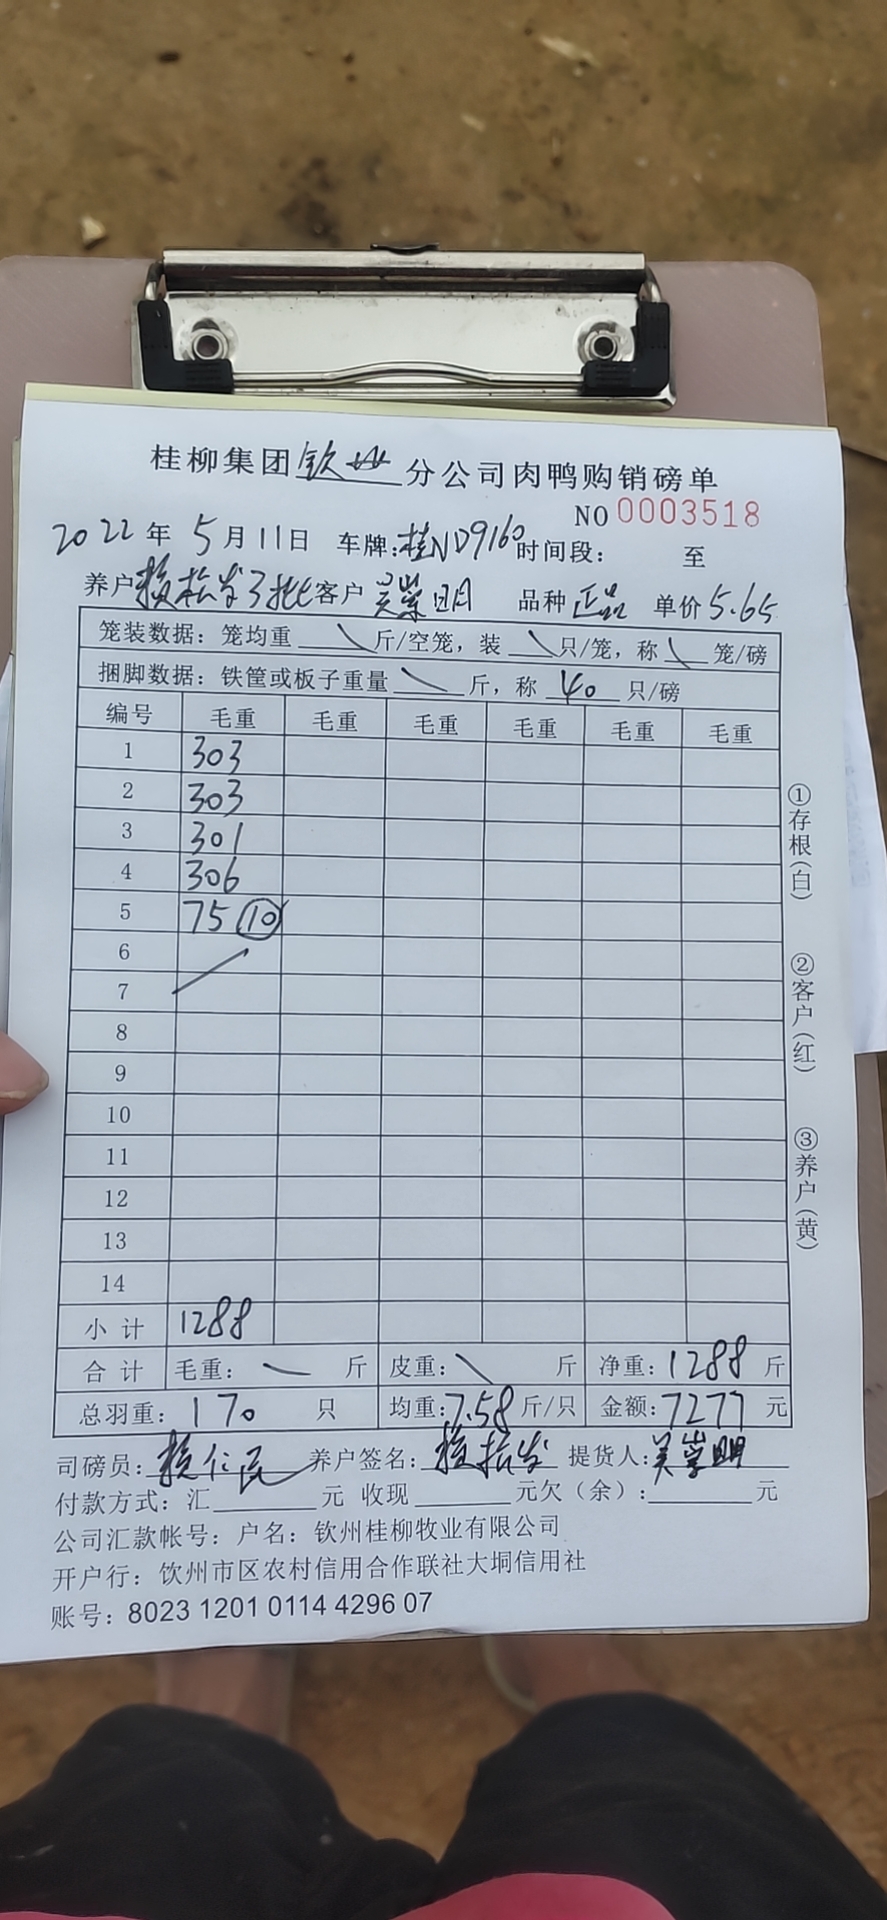 桂柳集团钦州分公司肉鸭购销磅单
NO 0003518
2022年5月11日 车牌:桂ND9160时间段: 至
养户 3批客户 品种 正品 单价5.65
笼装数据:笼均重 \ 斤/空笼,装 \ 只/笼,称 \ 笼/磅
捆脚数据:铁筐或板子重量 \ 斤,称 40 只/磅
编号 毛重 毛重 毛重 毛重 毛重 毛重
1 303
2 303
3 301
4 306
5 75 ⑩
6
7
8
9
10
11
12
13
14
小计 1288
合计 毛重: 斤 皮重: \ 斤 净重:1288斤
总羽重:170 只 均重:7.58斤/只 金额:7277元
司磅员: 养户签名: 提货人:
付款方式:汇 元 收现 元欠(余): 元
公司汇款帐号:户名:钦州桂柳牧业有限公司
开户行:饮州市区农村信用合作联社大垌信用社
账号:8023 1201 0114 4296 07
①存根(白)
②客户(红)
③养户(黄)